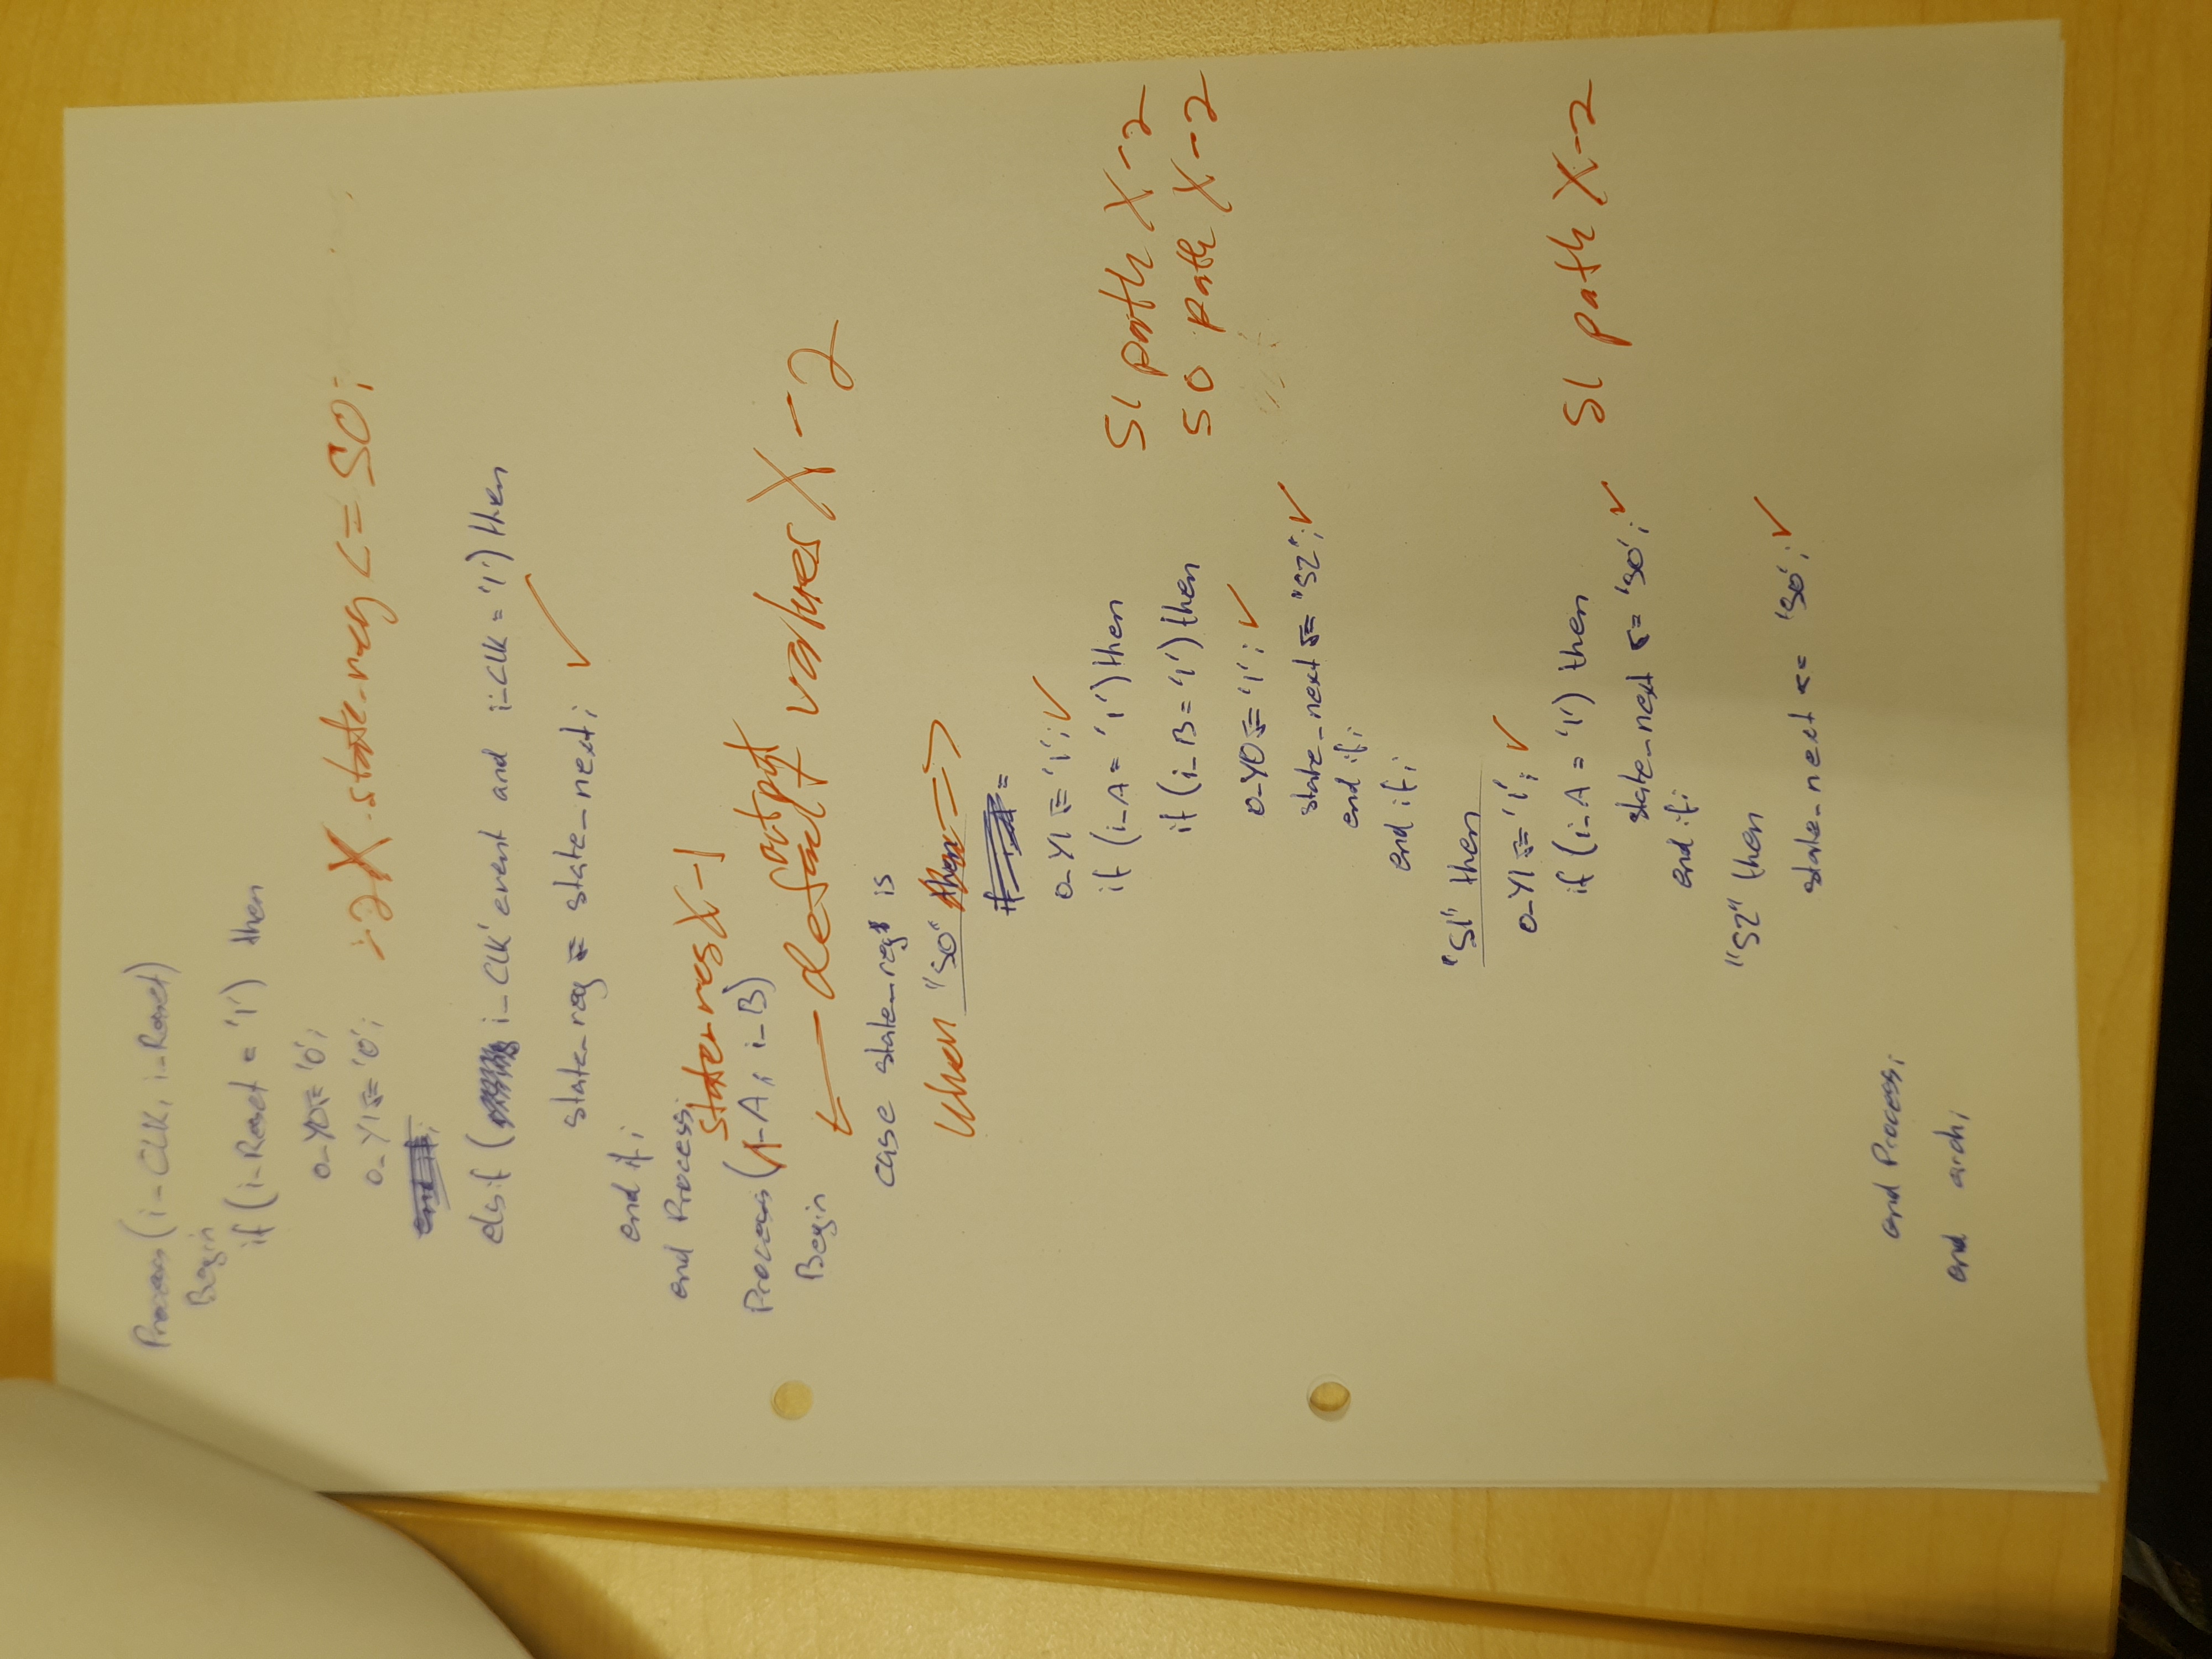 Process(i_CLK, i_Reset)
Begin
if (i_Reset = '1') then
o_Y0 <= '0';
o_Y1 <= '0'; -2X state_reg <= S0;
end if;
elsif ( i_CLK'event and i_CLK = '1') then
state_reg <= state_next; ✓
end if;
end Process;
state_res X -1
Process(i_A, i_B)
output
Begin ← default values X -2
case state_reg is
when "S0" then =>
if =
o_Y1 <= '1'; ✓
if (i_A = '1') then S1 path X -2
if (i_B = '1') then S0 path X -2
o_Y0 <= '1'; ✓
state_next <= "S2"; ✓
end if;
end if;
"S1" then
o_Y1 <= '1'; ✓
if (i_A = '1') then S1 path X -2
state_next <= 'S0'; ✓
end if;
"S2" then
state_next <= 'S0'; ✓
end Process;
end arch;